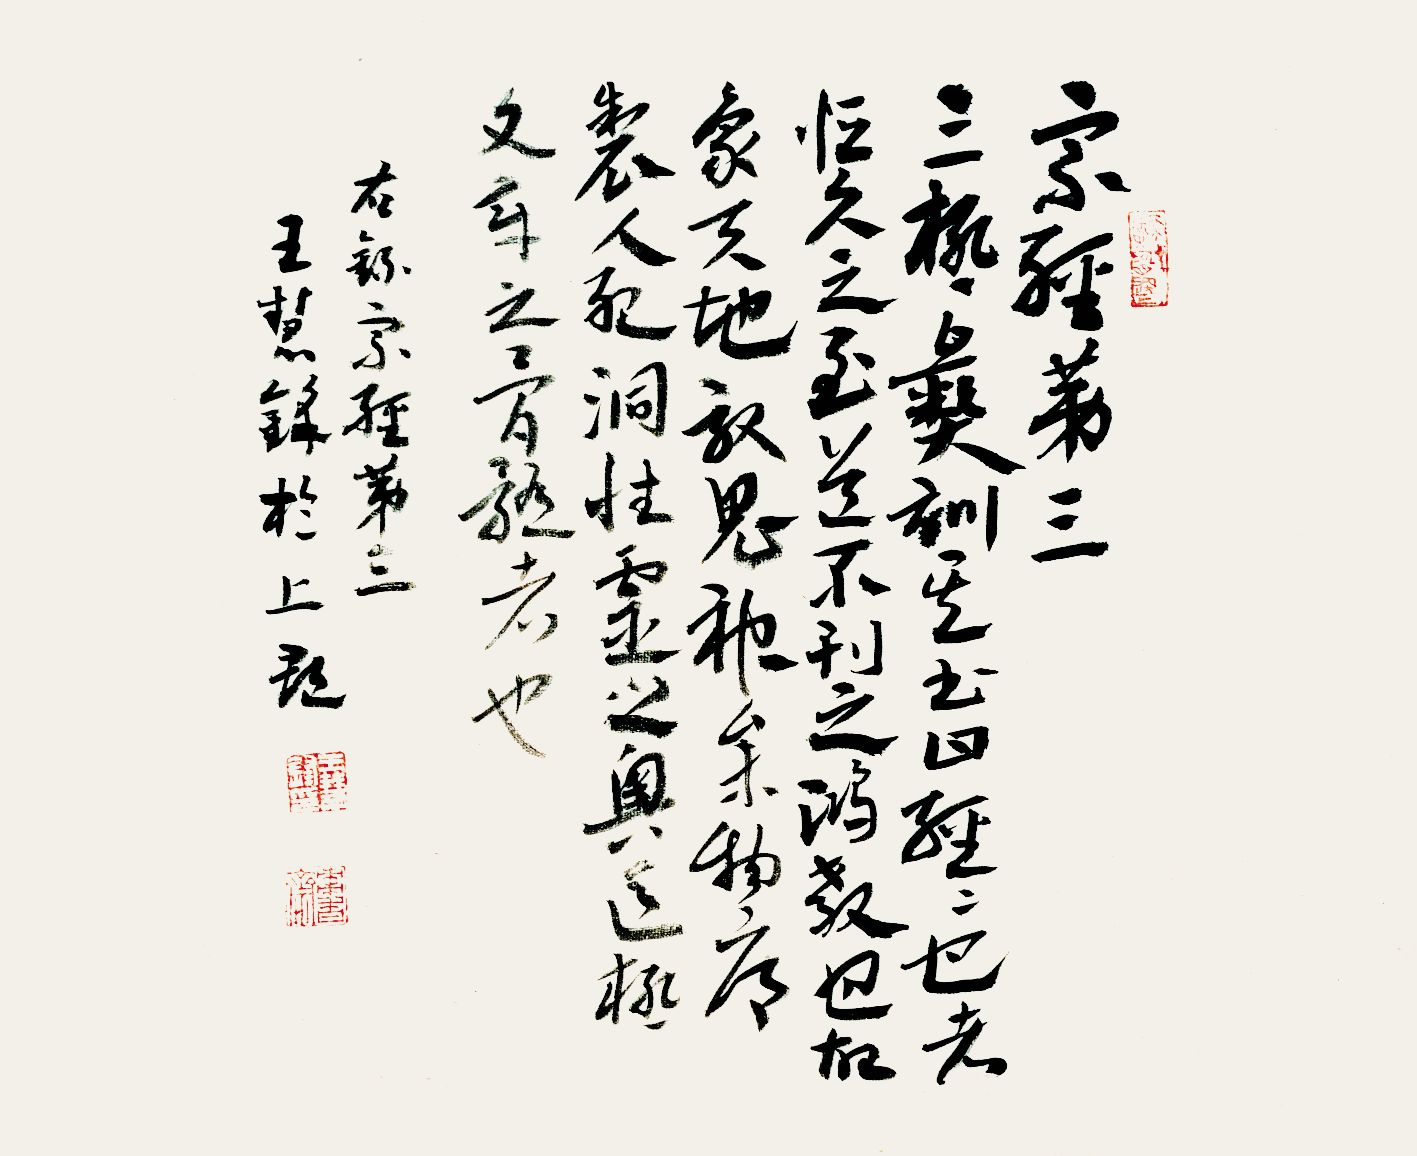 宗經第三
三極彝訓其書曰經〻也者
恒久之至道不刊之鴻教也故
象天地效鬼神參物序
製人紀洞性靈之奧區極
文章之骨髓者也
右錄宗經第三
王慧鋒於上